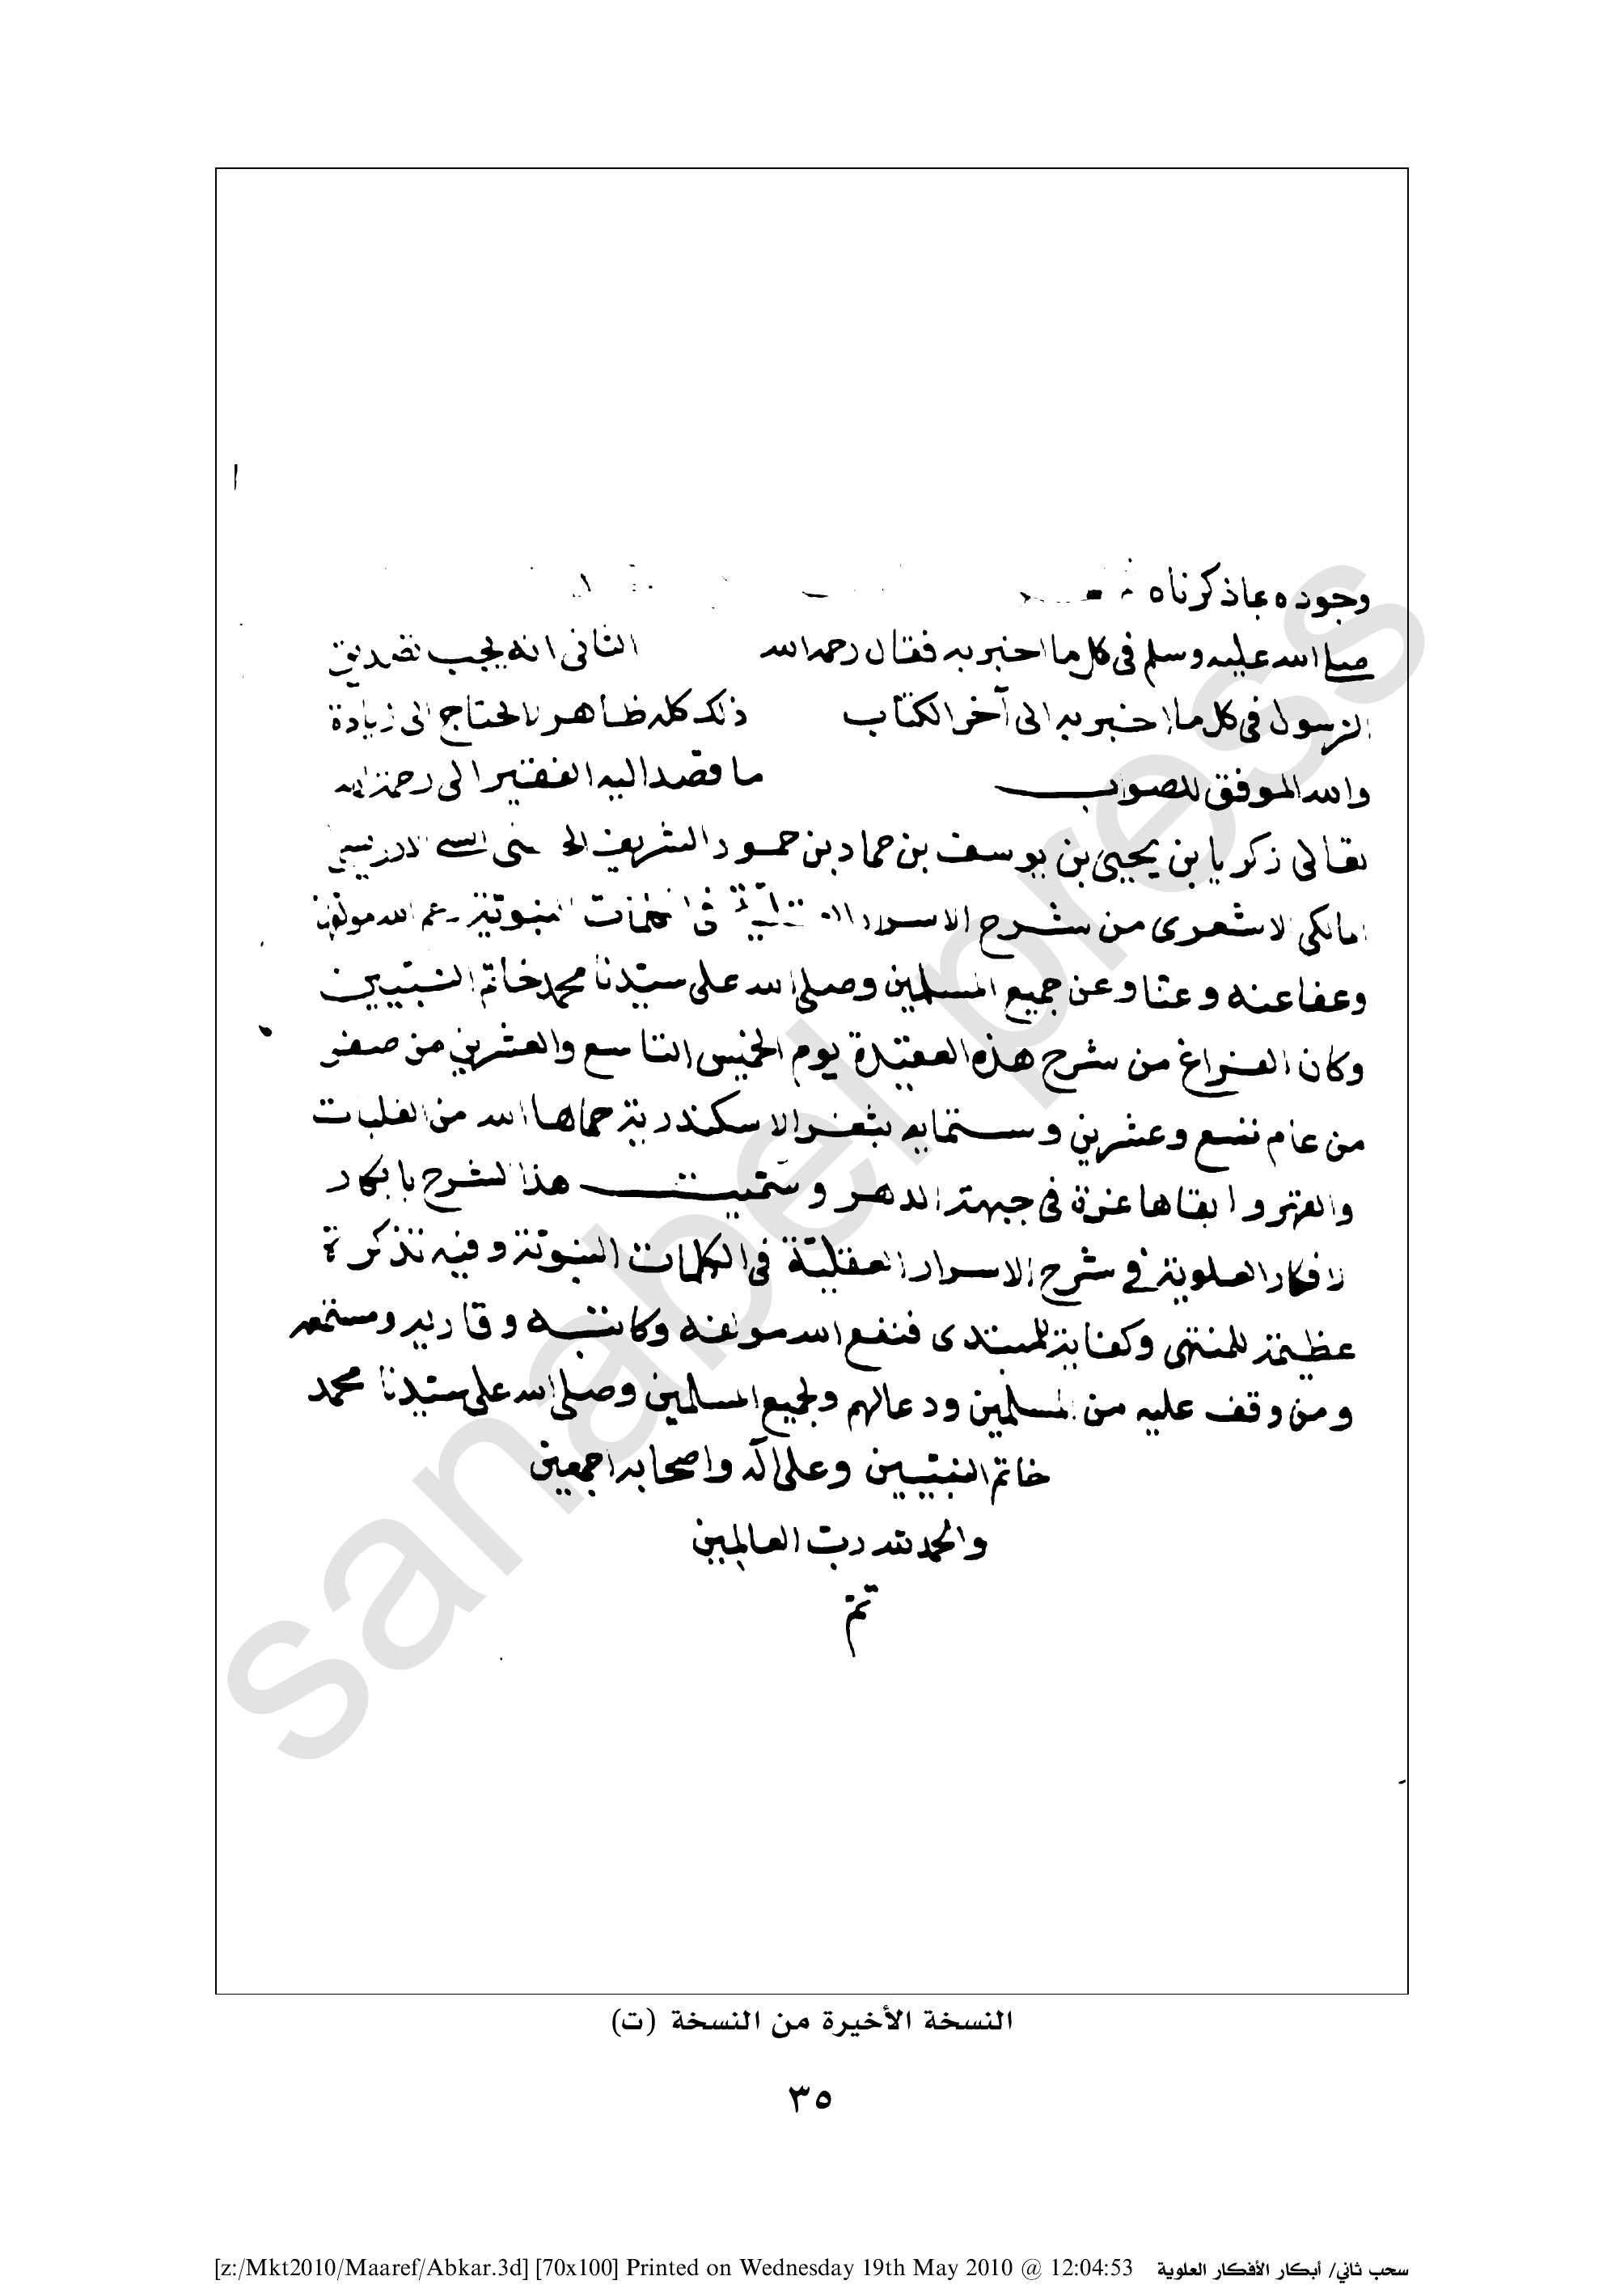 وجوده بماذكرناه
صلى الله عليه وسلم في كل ما اخبر به فقال رحمه الله الثاني انه يجب تصديق
الرسول في كل ما اخبر به الى آخر الكتاب ذلك كله ظاهر لا يحتاج الى زيادة
والله الموفق للصواب ما قصد اليه الفقير الى رحمة الله
تعالى زكريا بن يحيى بن يوسف بن حماد بن حمود الشريف الادريسي
المالكي الاشعري من شرح الاسرار العقلية في الكلمات النبوية رحم الله مولفها
وعفا عنه وعنا وعن جميع المسلمين وصلى الله على سيدنا محمد خاتم النبيين
وكان الفراغ من شرح هذه العقيدة يوم الخميس التاسع والعشرين من صفر
من عام تسع وعشرين وستمايه بثغر الاسكندرية حماها الله من الغلبات
وابقاها غرة في جبهة الدهر وسميت هذا الشرح بابكار
لافكار العلوية في شرح الاسرار العقلية في الكلمات النبوية وفيه تذكرة
عظيمة للمنتهى وكفاية للمبتدى فنفع الله مولفه وكاتبه وقاريه ومستمعه
ومن وقف عليه من المسلمين ودعا لهم ولجميع المسلمين وصلى الله على سيدنا محمد
خاتم النبيين وعلى آله واصحابه اجمعين
والحمد لله رب العالمين
تم
sanabel press
النسخة الأخيرة من النسخة (ت)
٣٥
[z:/Mkt2010/Maaref/Abkar.3d] [70x100] Printed on Wednesday 19th May 2010 @ 12:04:53 سحب ثاني/ أبكار الأفكار العلوية